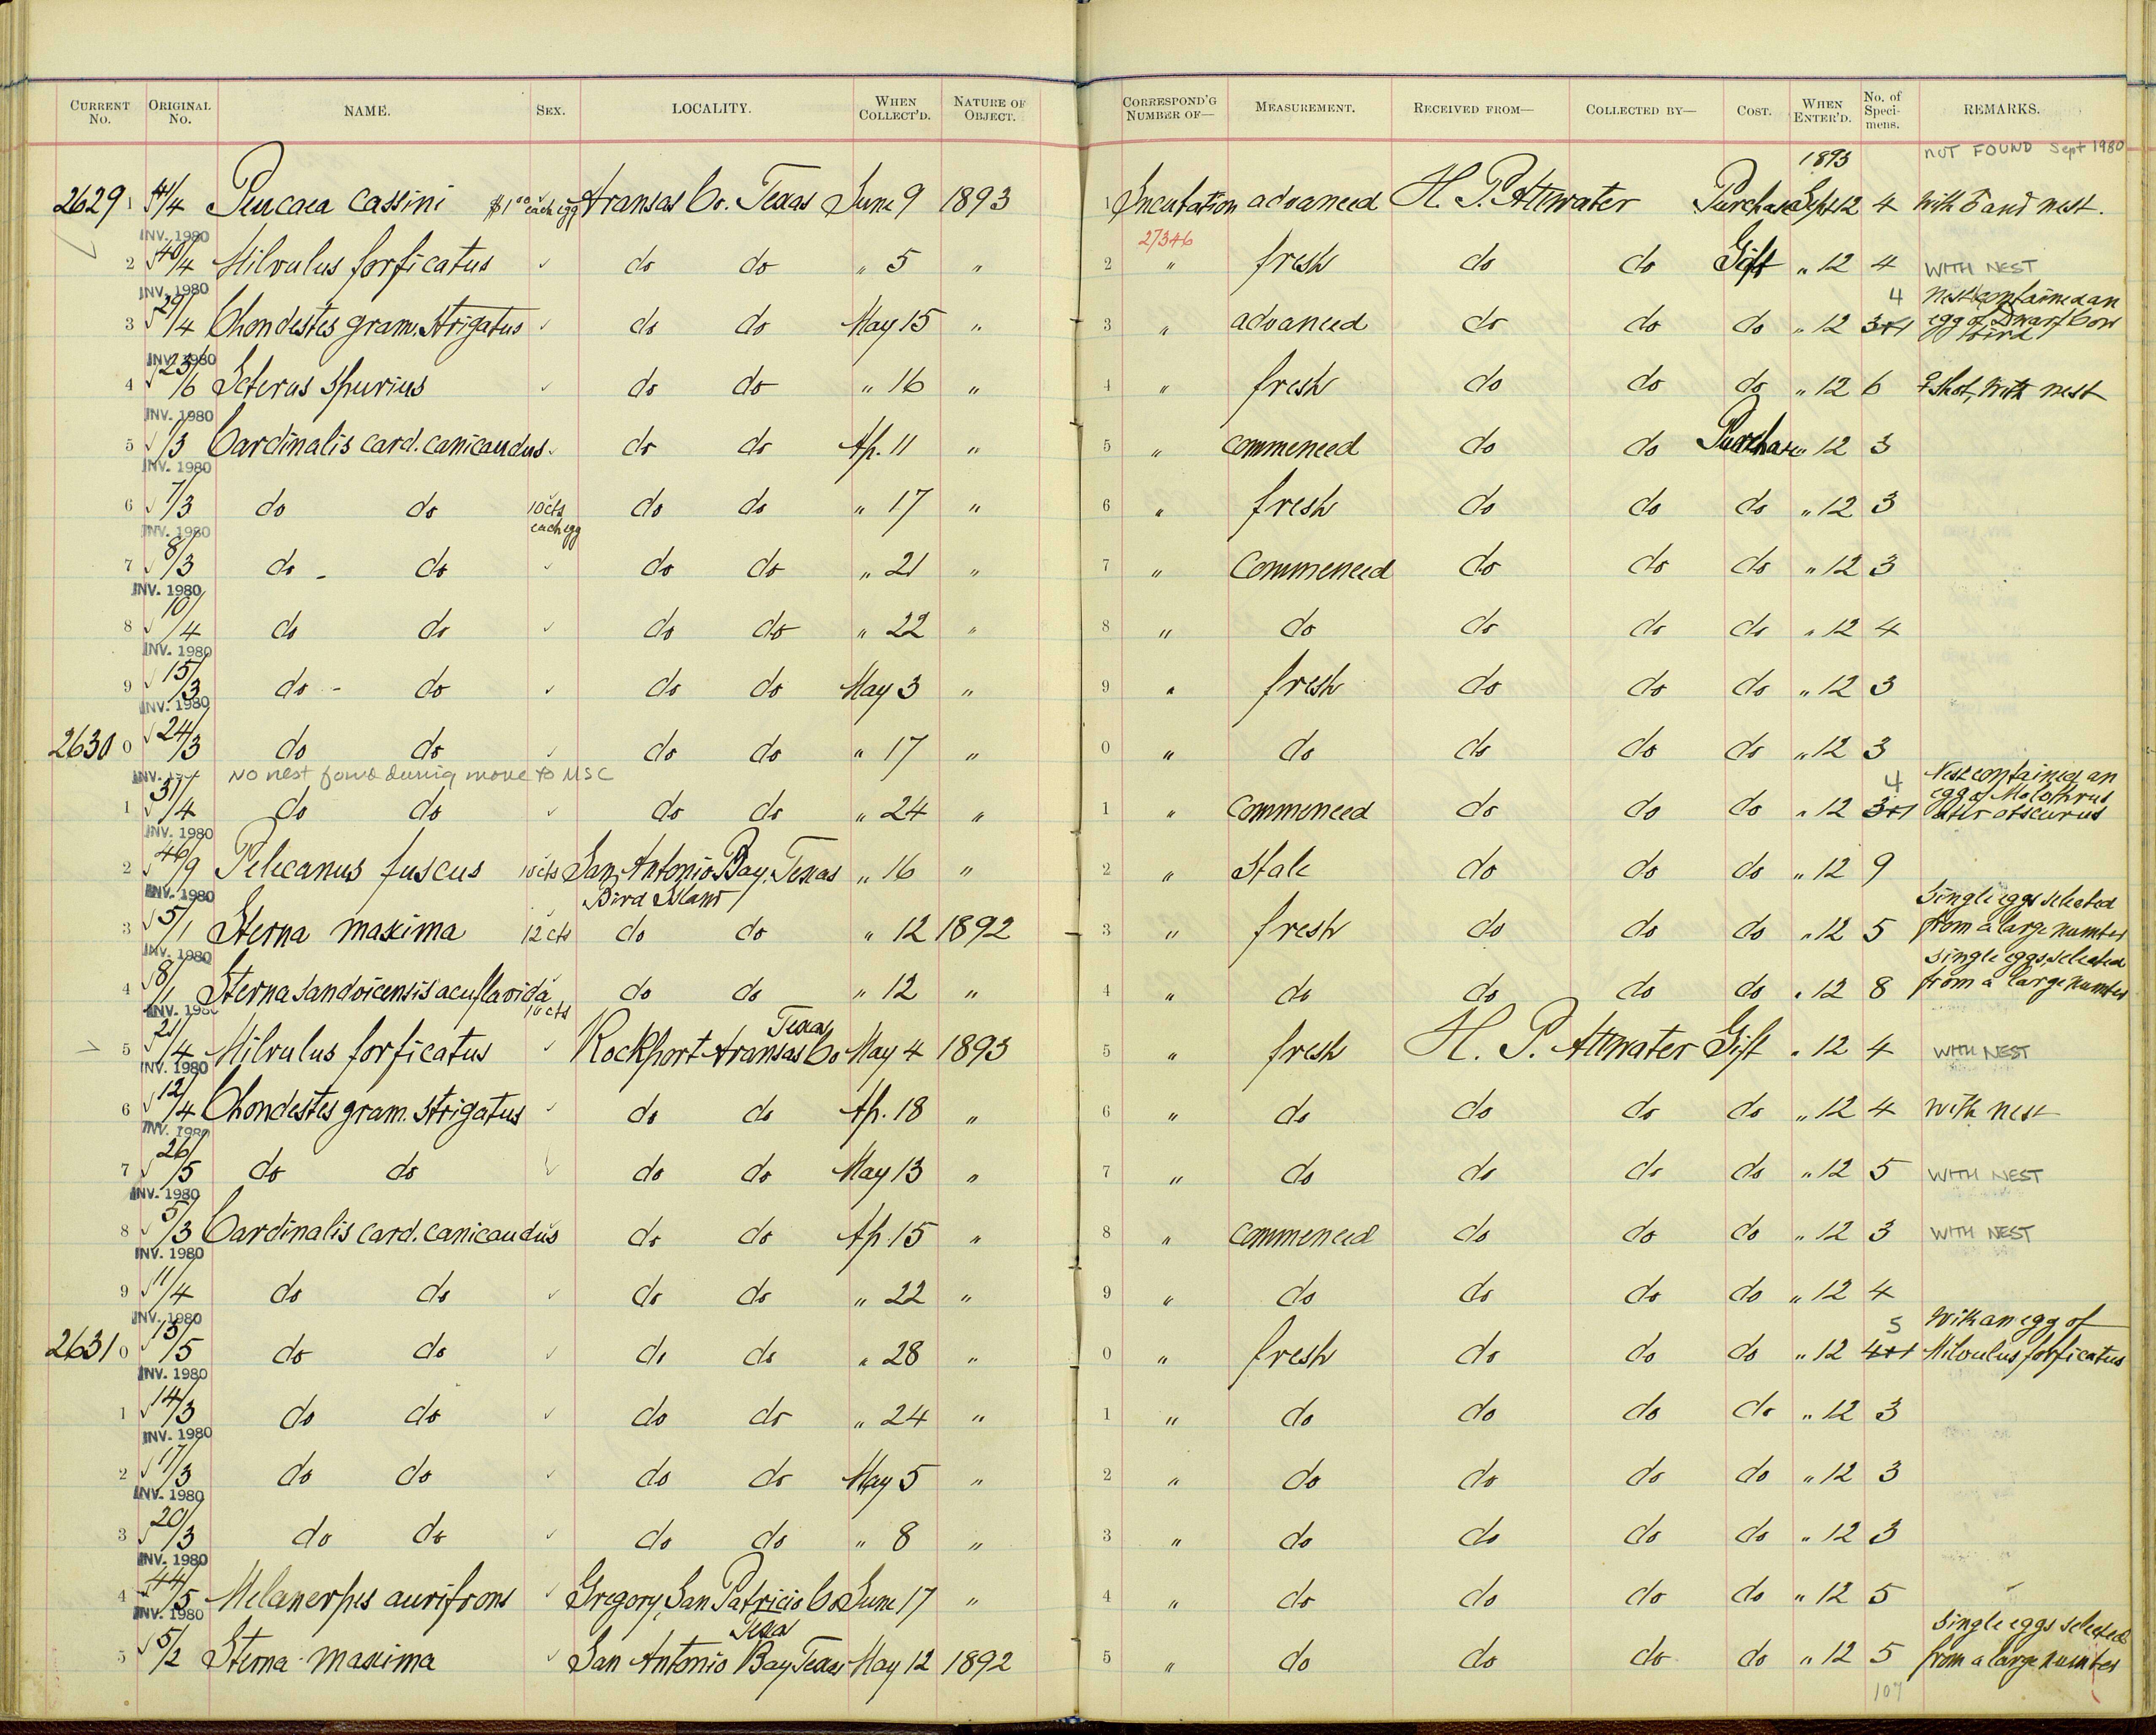 CURRENT No. ORIGINAL No. NAME. SEX. LOCALITY. WHEN COLLECT'D. NATURE OF OBJECT. CORRESPOND'G NUMBER OF— MEASUREMENT. RECEIVED FROM— COLLECTED BY— COST. WHEN ENTER'D. No. of Specimens. REMARKS.
1893 NOT FOUND Sept 1980
2629 1 41/4 Peucaea cassini $1.00 each egg Aransas Co. Texas June 9 1893 1 Incubation advanced H. P. Attwater Purchase Sept 12 4 With ♂ and nest.
INV. 1980 27346
2 40/4 Milvulus forficatus do do " 5 " 2 " fresh do do Gift " 12 4 WITH NEST
INV. 1980
3 29/4 Chondestes gram. strigatus do do May 15 " 3 " advanced do do do " 12 3+1 4 Nest contained an egg of Dwarf Cow bird
INV. 1980
4 23/6 Icterus spurius do do " 16 " 4 " fresh do do do " 12 6 ♀ shot, with nest
INV. 1980
5 1/3 Cardinalis card. canicaudus do do Ap. 11 " 5 " commenced do do Purchase " 12 3
INV. 1980
6 7/3 do do 10 cts each egg do do " 17 " 6 " fresh do do do " 12 3
INV. 1980
7 8/3 do - do do do " 21 " 7 " Commenced do do do " 12 3
INV. 1980
8 10/4 do do do do " 22 " 8 " do do do do " 12 4
INV. 1980
9 15/3 do - do do do May 3 " 9 " fresh do do do " 12 3
INV. 1980
2630 0 24/3 do do do do " 17 " 0 " do do do do " 12 3
INV. NO nest found during move to MSC
1 31/4 do do do do " 24 " 1 " commenced do do do " 12 3+1 4 Nest contained an egg of Molothrus ater obscurus
INV. 1980
2 46/9 Pelecanus fuscus 10 cts San Antonio Bay, Texas " 16 " 2 " Stale do do do " 12 9
INV. 1980 Bird Island
3 5/1 Sterna maxima 12 cts do do " 12 1892 3 " fresh do do do " 12 5 Single eggs selected from a large number
INV. 1980
4 8/1 Sterna sandvicensis acuflavida 10 cts do do " 12 " 4 " do do do do " 12 8 single eggs, selected from a large number
INV. 1980
5 21/4 Milvulus forficatus Rockport Aransas Co Texas May 4 1893 5 " fresh H. P. Attwater Gift " 12 4 WITH NEST
INV. 1980
6 12/4 Chondestes gram. strigatus do do Ap. 18 " 6 " do do do do " 12 4 With nest
INV. 1980
7 26/5 do do do do May 13 " 7 " do do do do " 12 5 WITH NEST
INV. 1980
8 5/3 Cardinalis card. canicaudus do do Ap. 15 " 8 " commenced do do do " 12 3 WITH NEST
INV. 1980
9 11/4 do do do do " 22 " 9 " do do do do " 12 4
INV. 1980
2631 0 13/5 do do do do " 28 " 0 " fresh do do do " 12 4+1 5 With an egg of Milvulus forficatus
INV. 1980
1 14/3 do do do do " 24 " 1 " do do do do " 12 3
INV. 1980
2 17/3 do do do do May 5 " 2 " do do do do " 12 3
INV. 1980
3 20/3 do do do do " 8 " 3 " do do do do " 12 3
INV. 1980
4 44/5 Melanerpes aurifrons Gregory, San Patricio Co Texas June 17 " 4 " do do do do " 12 5
INV. 1980
5 5/2 Sterna maxima San Antonio Bay Texas May 12 1892 5 " do do do do " 12 5 Single eggs selected from a large number
107